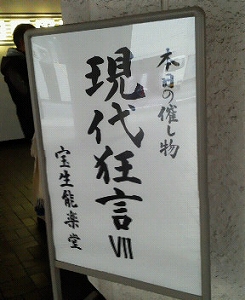 本日の催し物
現代狂言Ⅶ
宝生能楽堂